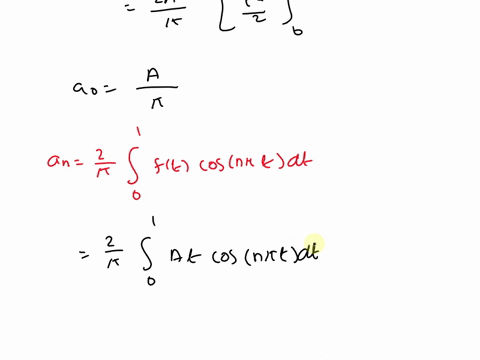 = 2A/π [t²/2]₀
a₀ = A/π
aₙ = 2/π ∫₀¹ f(t) cos(nπt)dt
= 2/π ∫₀¹ At cos(nπt)dt